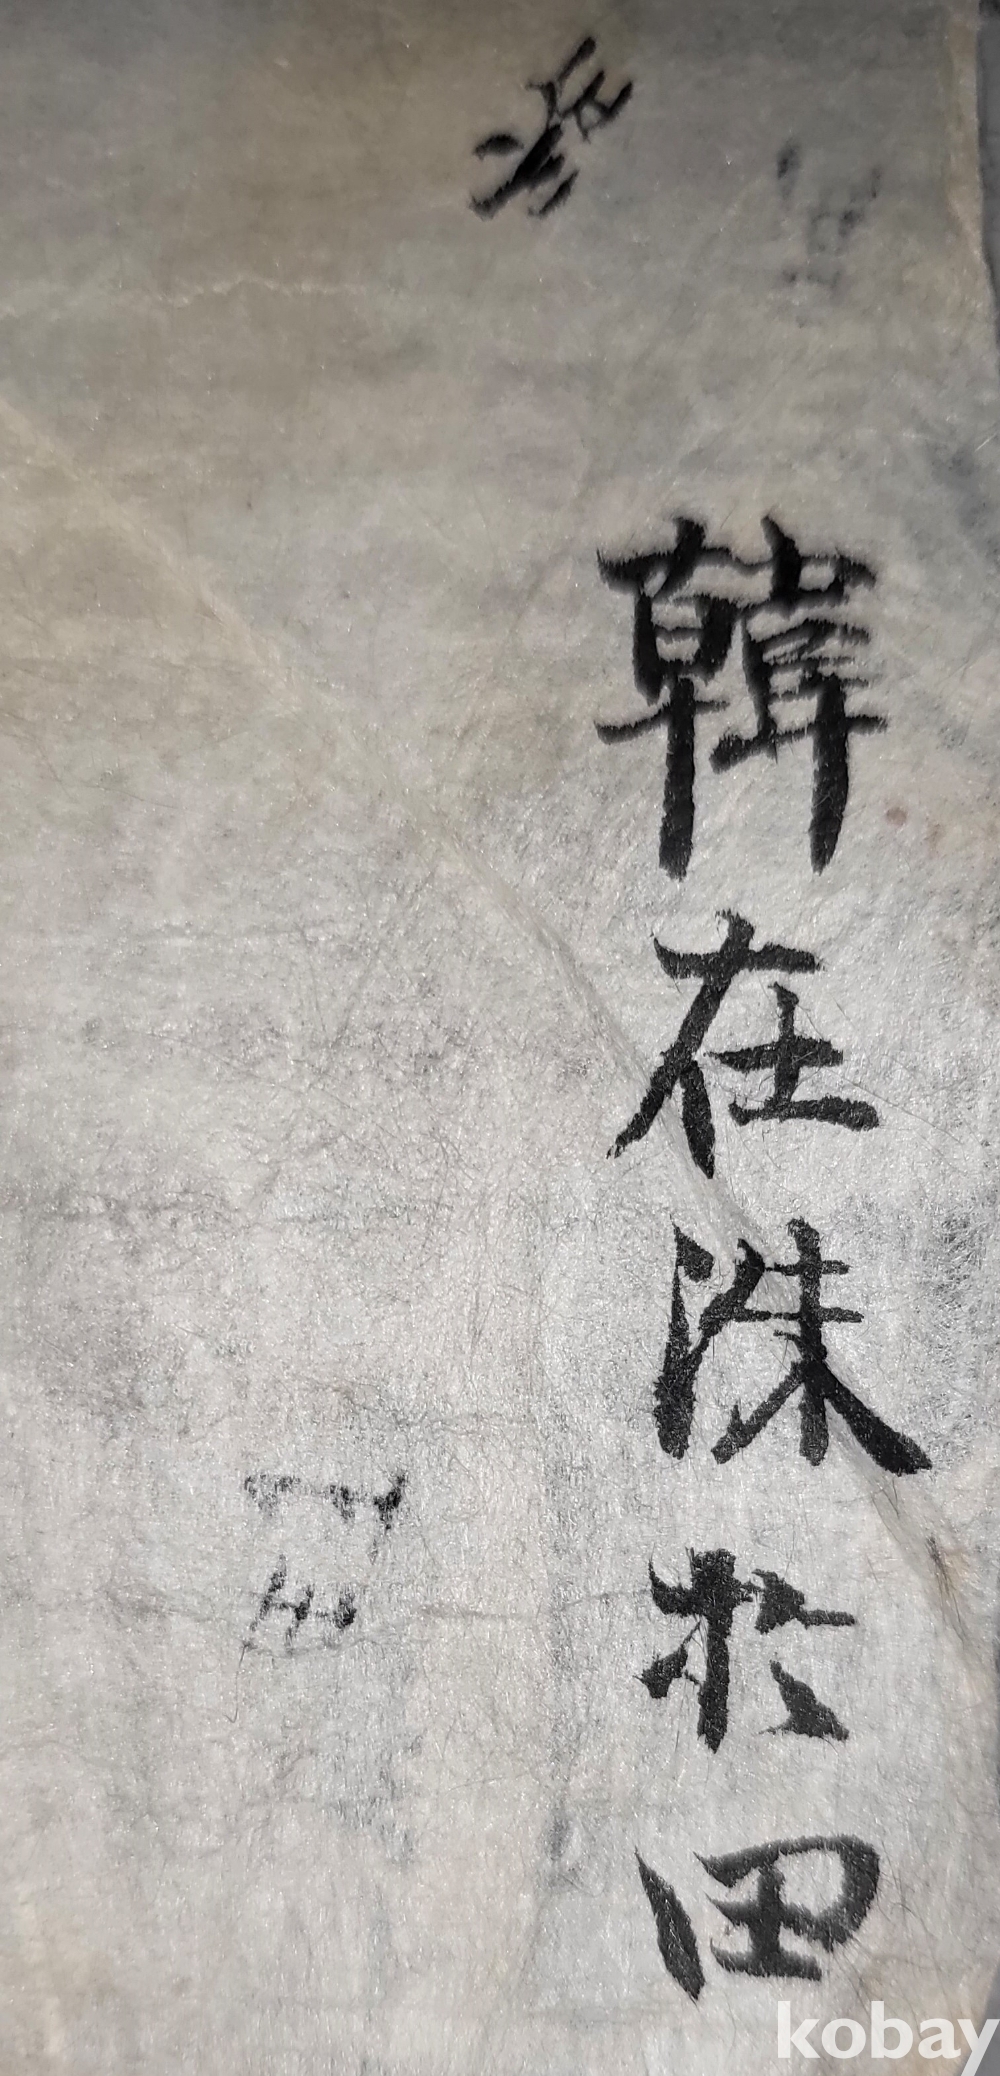 韓在洙於田
kobay